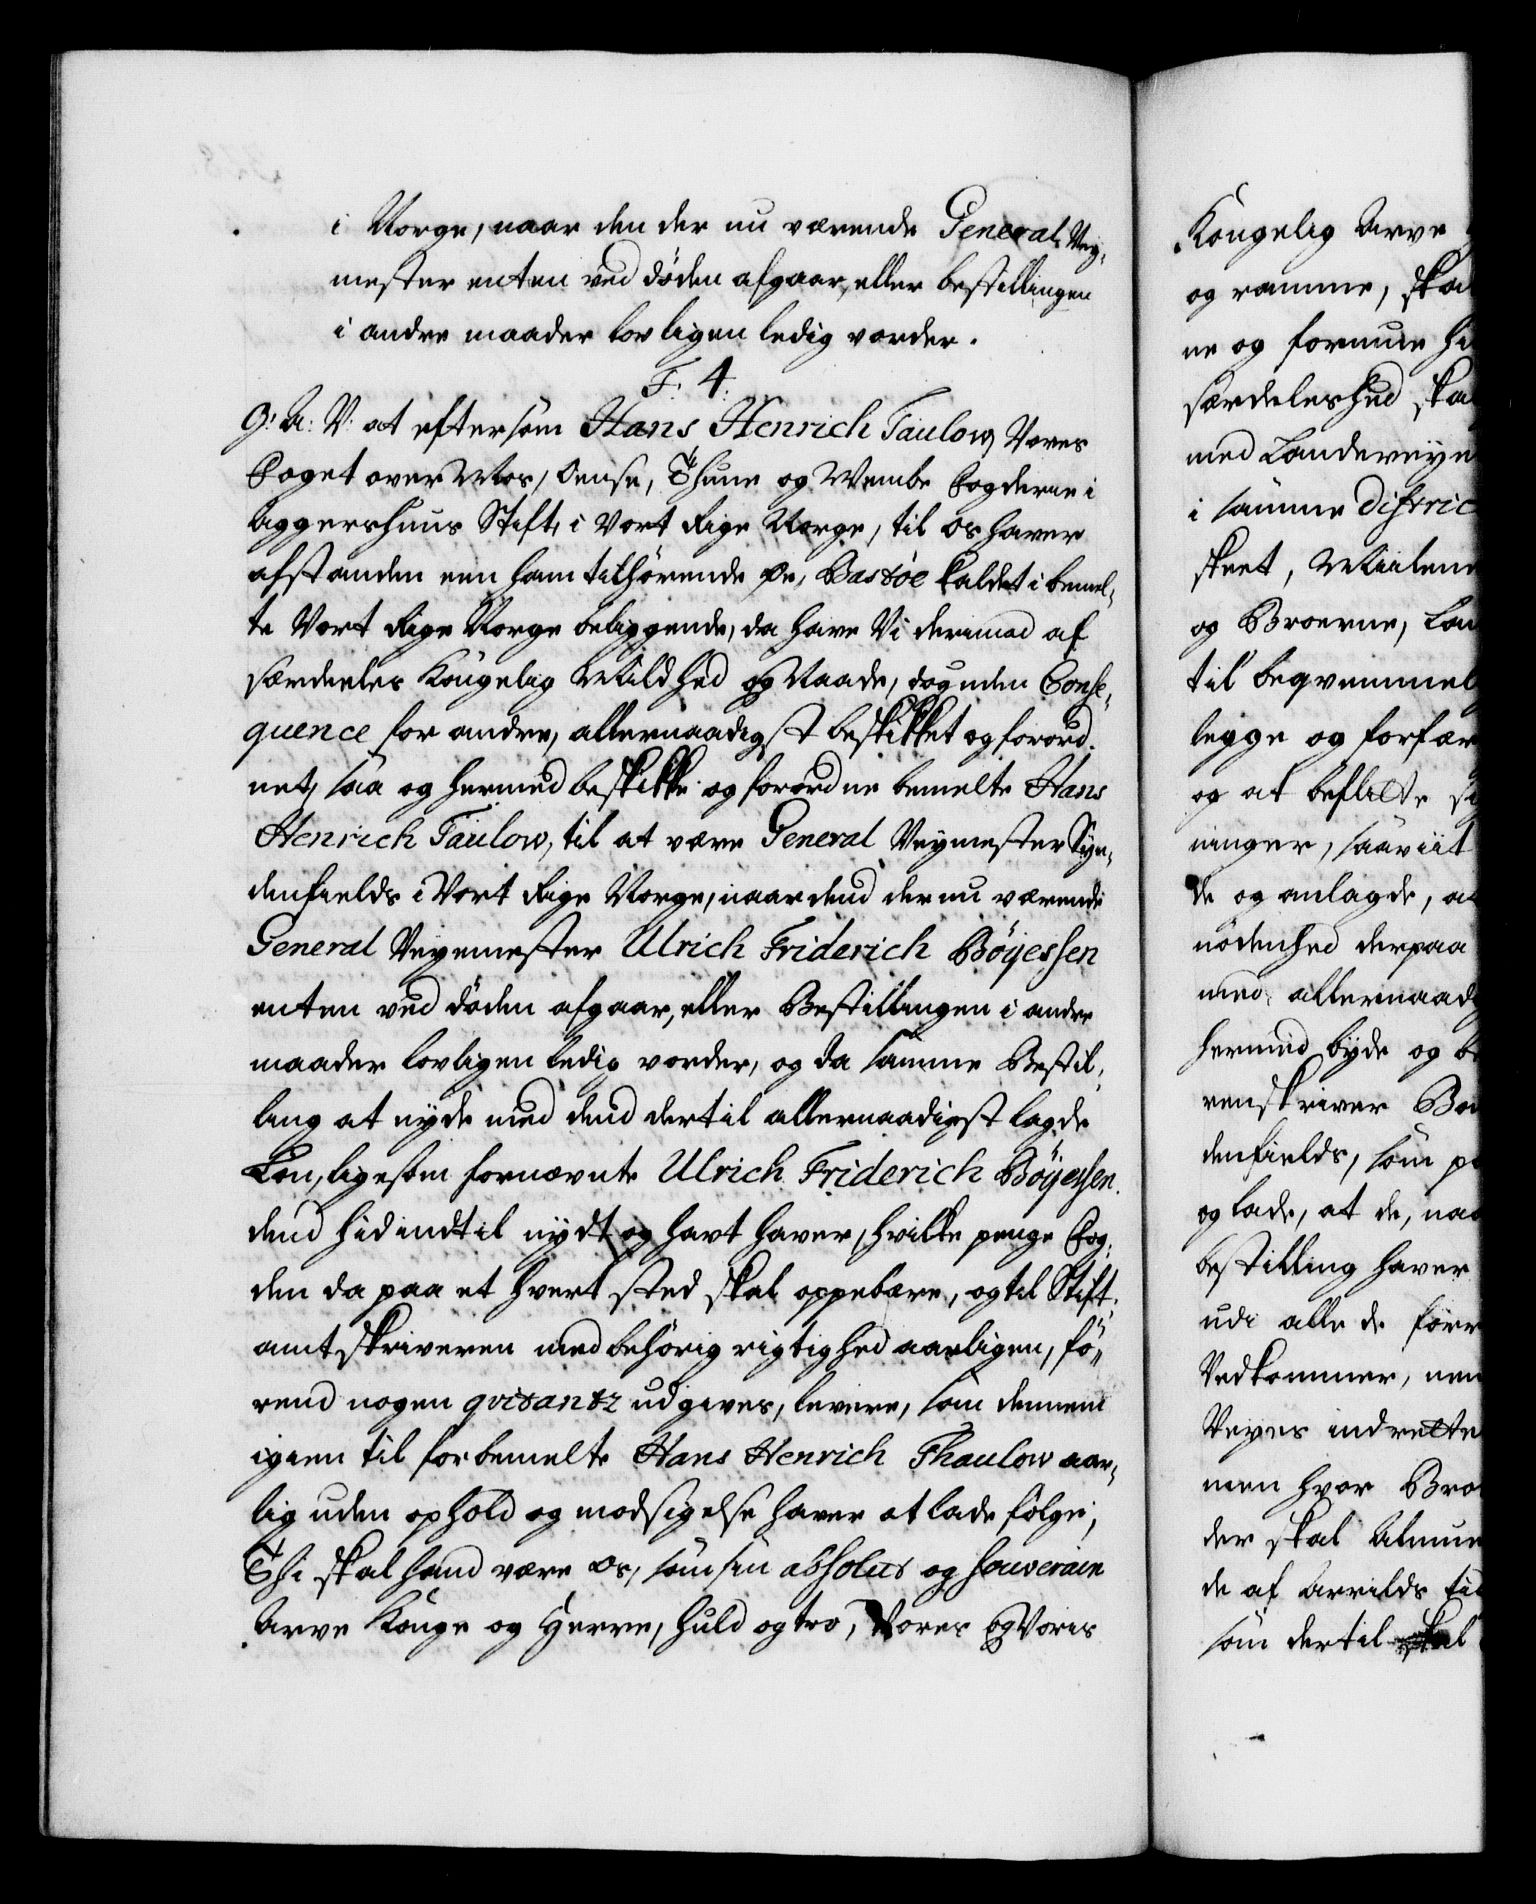 i Norge, naar den der nu værende General Vey-
mester enten ved døden afgaar, eller bestillingen
i andre maader lovligen ledig vorder.
F: 4:
G: A: V: at eftersom Hans Henrich Taulow, Vores
Foget over Mos, Onsø, Thune og Wembe Fogderne i
Aggershuus Stift, i Vort Rige Norge, til os haver
afstanden een ham tilhørende Øe, Bastøe kaldet i bemel-
te Vort Rige Norge beliggende, da have Vi derimod af
særdeeles Kongelig Mildhed og Naade, dog uden Conse-
quence for andre, allernaadigst beskikket og forord-
net, saa og hermed beskikke og forordne bemelte Hans
Henrich Taulow, til at være General Veymester Syn-
denfields i Vort Rige Norge, naar dend der nu værende
General Veyemester Ulrich Friderich Böyessen
enten ved døden afgaar, eller Bestillingen i andre
maader lovligen ledig vorder, og da samme Bestil-
ling at nyde med dend dertil allernaadigst lagde
Løn, ligesom fornævnte Ulrich Friderich Böyessen
dend hidindtil nydt og havt haver, hvilke penge Fog-
den da paa et hvert sted skal oppebære, og til Stift-
amtskriveren med behörig rigtighed aarligen, fö-
rend nogen qvitantz udgives, levere, som dennem
igien til forbemelte Hans Henrich Thaulow aar-
lig uden ophold og modsigelse haver at lade fölge,
Thi skal hand være Os, som sin absolut og souverain
Arve Konge og Herre, huld og tro, Vores og Voris
Kongelig Arve
og ramme, skal
ne og formue
særdeleshed skal
med Landeveye
i samme District
skeet, Miilene
og Broerne,
til beqvemmel
legge og forfær
og at beflitte
ninger, saaviit
de og anlagde,
nödenhed derpaa
med allernaad
hermed byde og
renskriver
denfields, som
og lade, at de, naa
bestilling haver
udi alle de
Vedkommer,
Veyes indrette
men hvor Bro
der skal Almue
de af Arrilds
som dertil skal